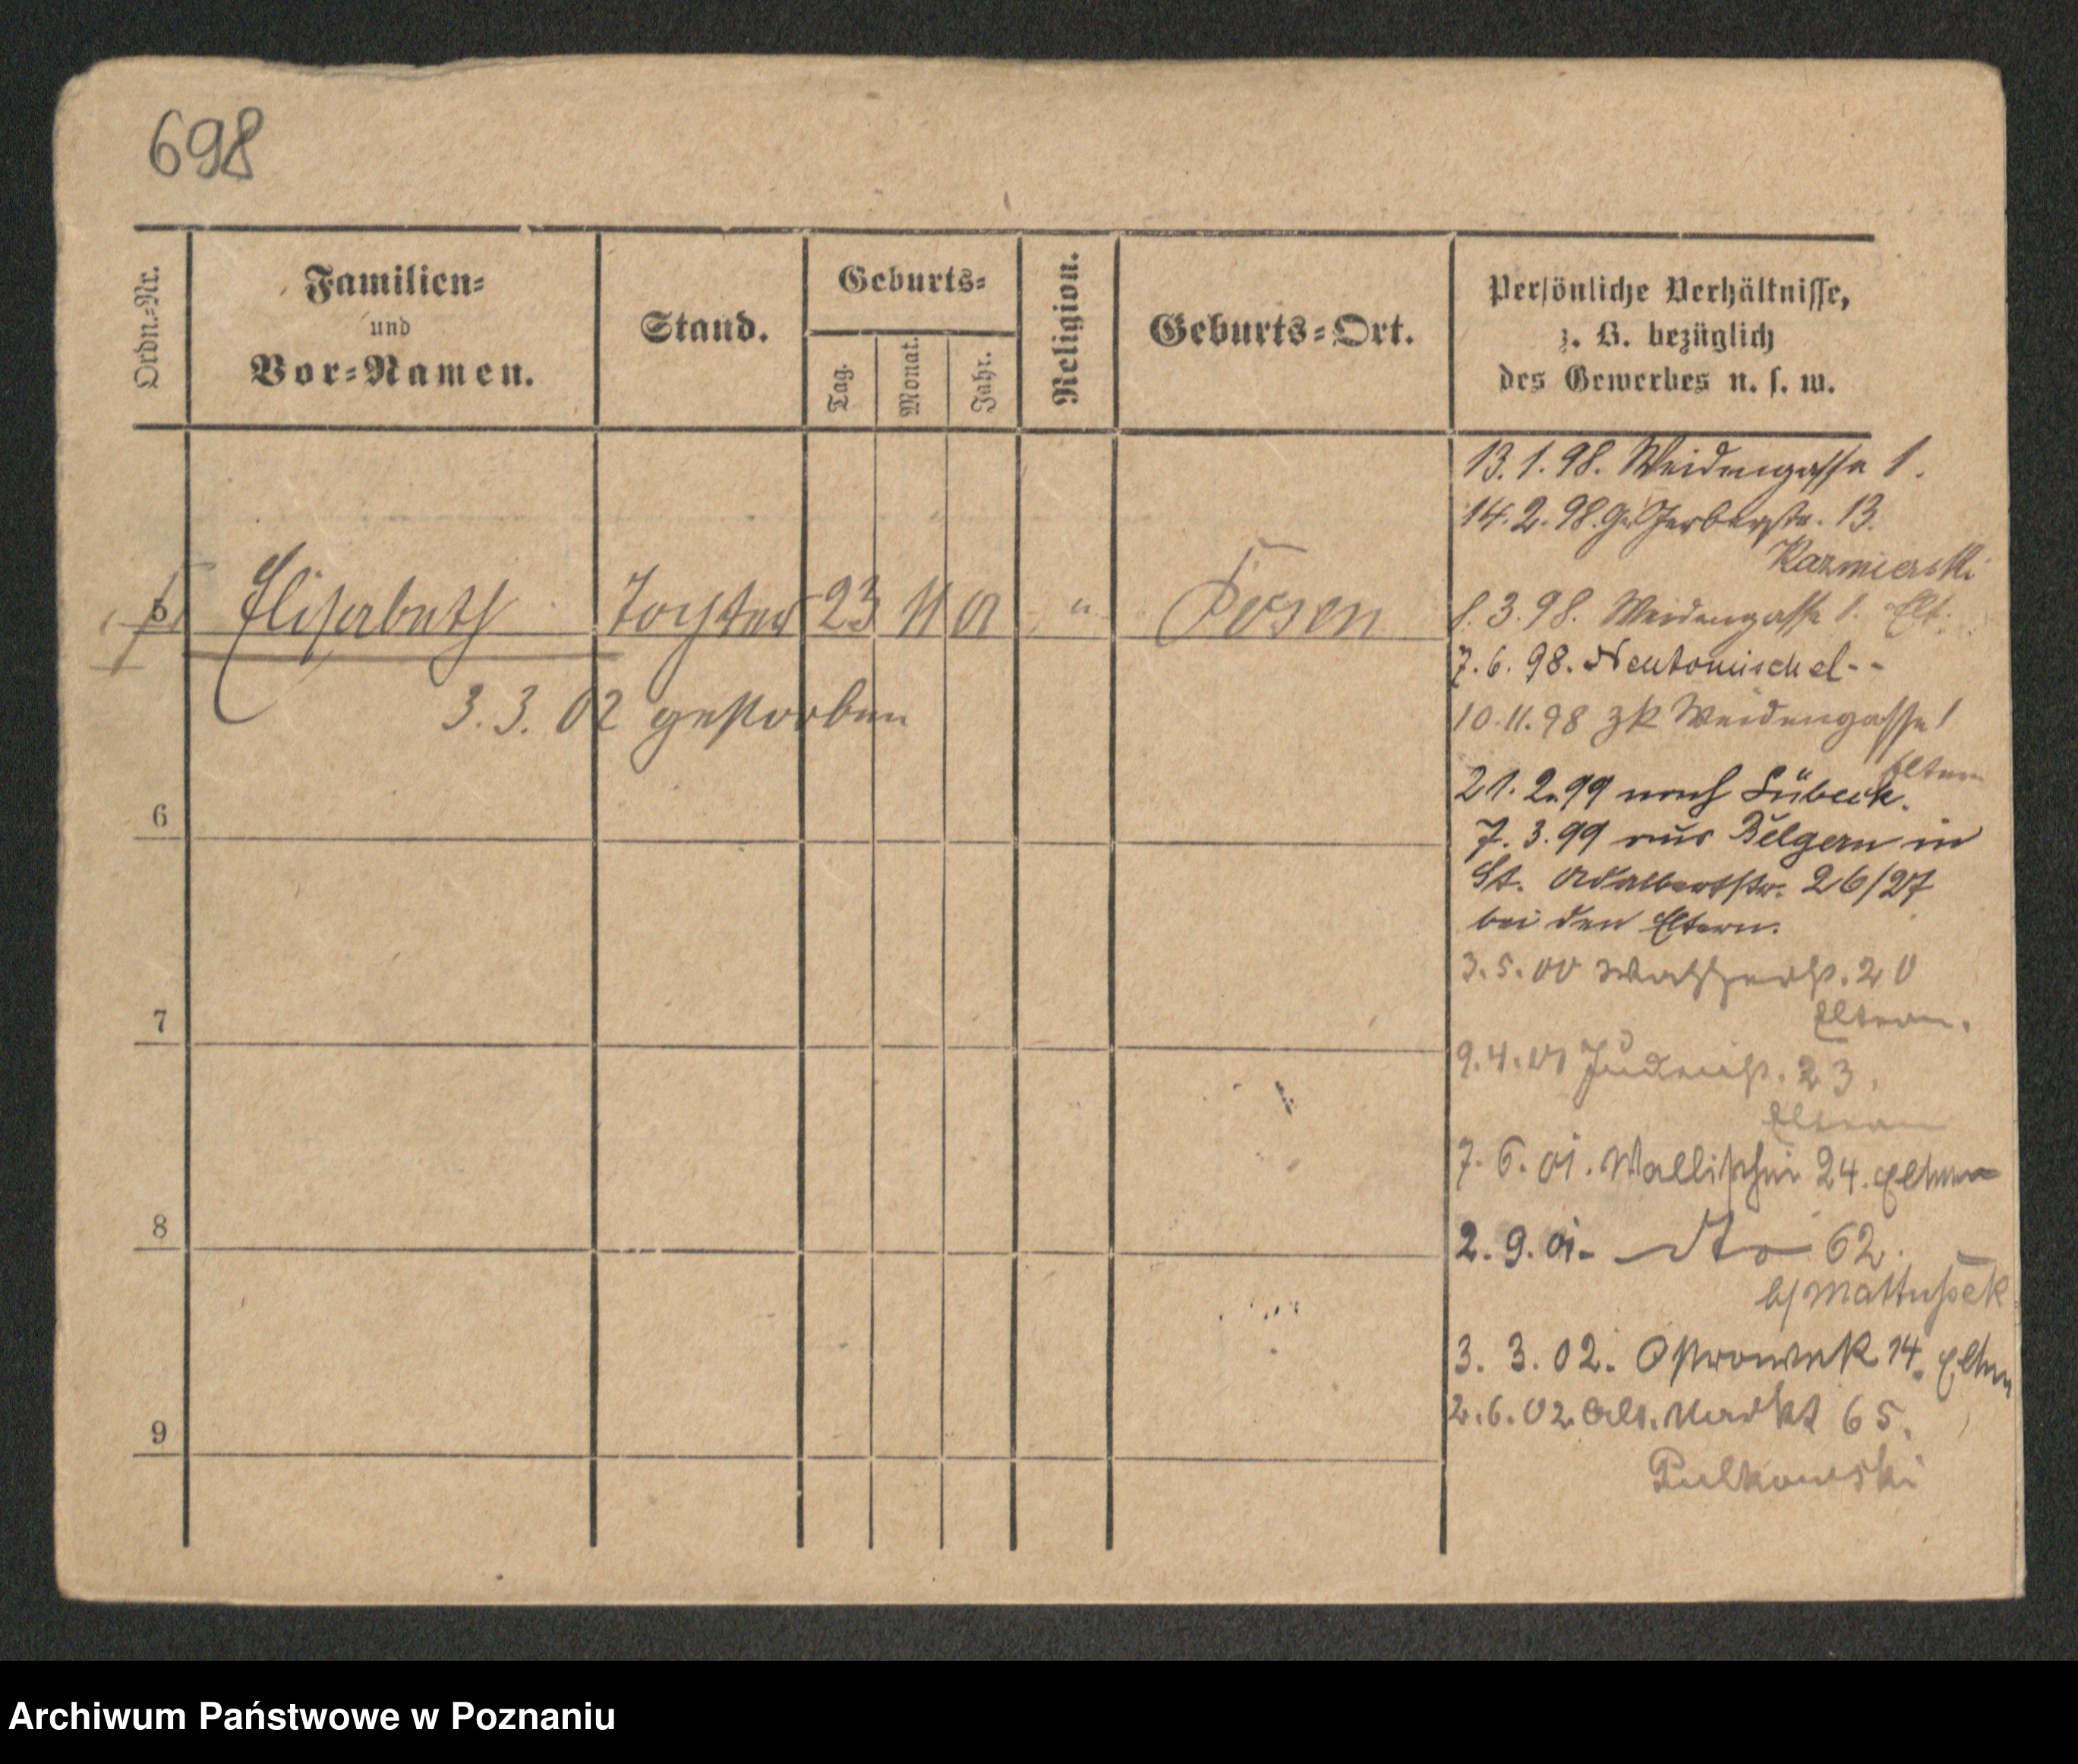 698
Ordn.-Nr.
Familien-
und
Vor-Namen.
Stand.
Geburts-
Tag.
Monat.
Jahr.
Religion.
Geburts-Ort.
Persönliche Verhältnisse,
z. B. bezüglich
des Gewerbes u. s. w.
13.1.98. Weidengasse 1.
14.2.98. Gr. Gerberstr. 13.
Kazmierski
8.3.98. Weidengasse 1. Elt.
5 Elisabeth Tochter 23 11 01 " Posen
3.3.02 gestorben
7.6.98. Neutomischel--
10.11.98 zk Weidengasse 1
Eltern
21.2.99 nach Lübeck.
7.3.99 aus Belgern in
St. Adalbertstr. 26/27
bei den Eltern.
3.5.00 Wasserstr. 20
Eltern.
9.4.01 Judenstr. 23.
Eltern
7.6.01. Wallischei 24. Eltern
2.9.01- dto 62.
b/ Mattuszek
3.3.02. Ostrowek 14. Eltern
2.6.02. Alt. Markt 65.
Pulkowski
6
7
8
9
Archiwum Państwowe w Poznaniu